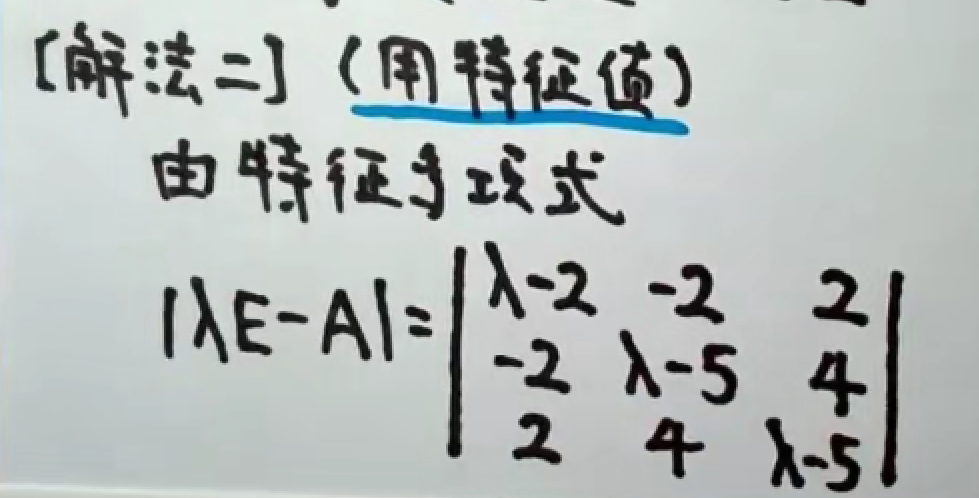 [解法二](用特征值)
由特征多项式
|λE-A|=|λ-2 -2 2|
-2 λ-5 4
2 4 λ-5